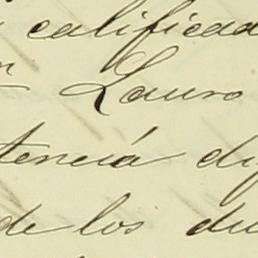 calificad
Lauro
tenciá di
de los du